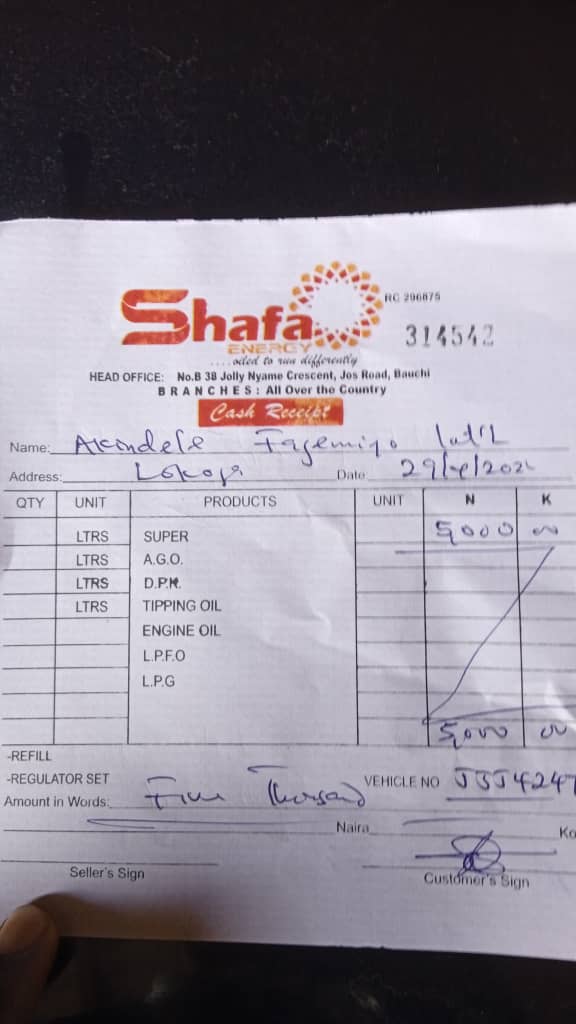 Shafa
ENERGY
RC 296875
314542
....oiled to run differently
HEAD OFFICE: No.B 38 Jolly Nyame Crescent, Jos Road, Bauchi
BRANCHES: All Over the Country
Cash Receipt
Name: Akindele
Address: Lokoja Date
QTY UNIT PRODUCTS UNIT N K
LTRS SUPER 5,000 00
LTRS A.G.O.
LTRS D.P.K.
LTRS TIPPING OIL
ENGINE OIL
L.P.F.O
L.P.G
5,000 00
-REFILL
-REGULATOR SET VEHICLE NO
Amount in Words: Five Thousand
Naira Ko
Seller's Sign Customer's Sign